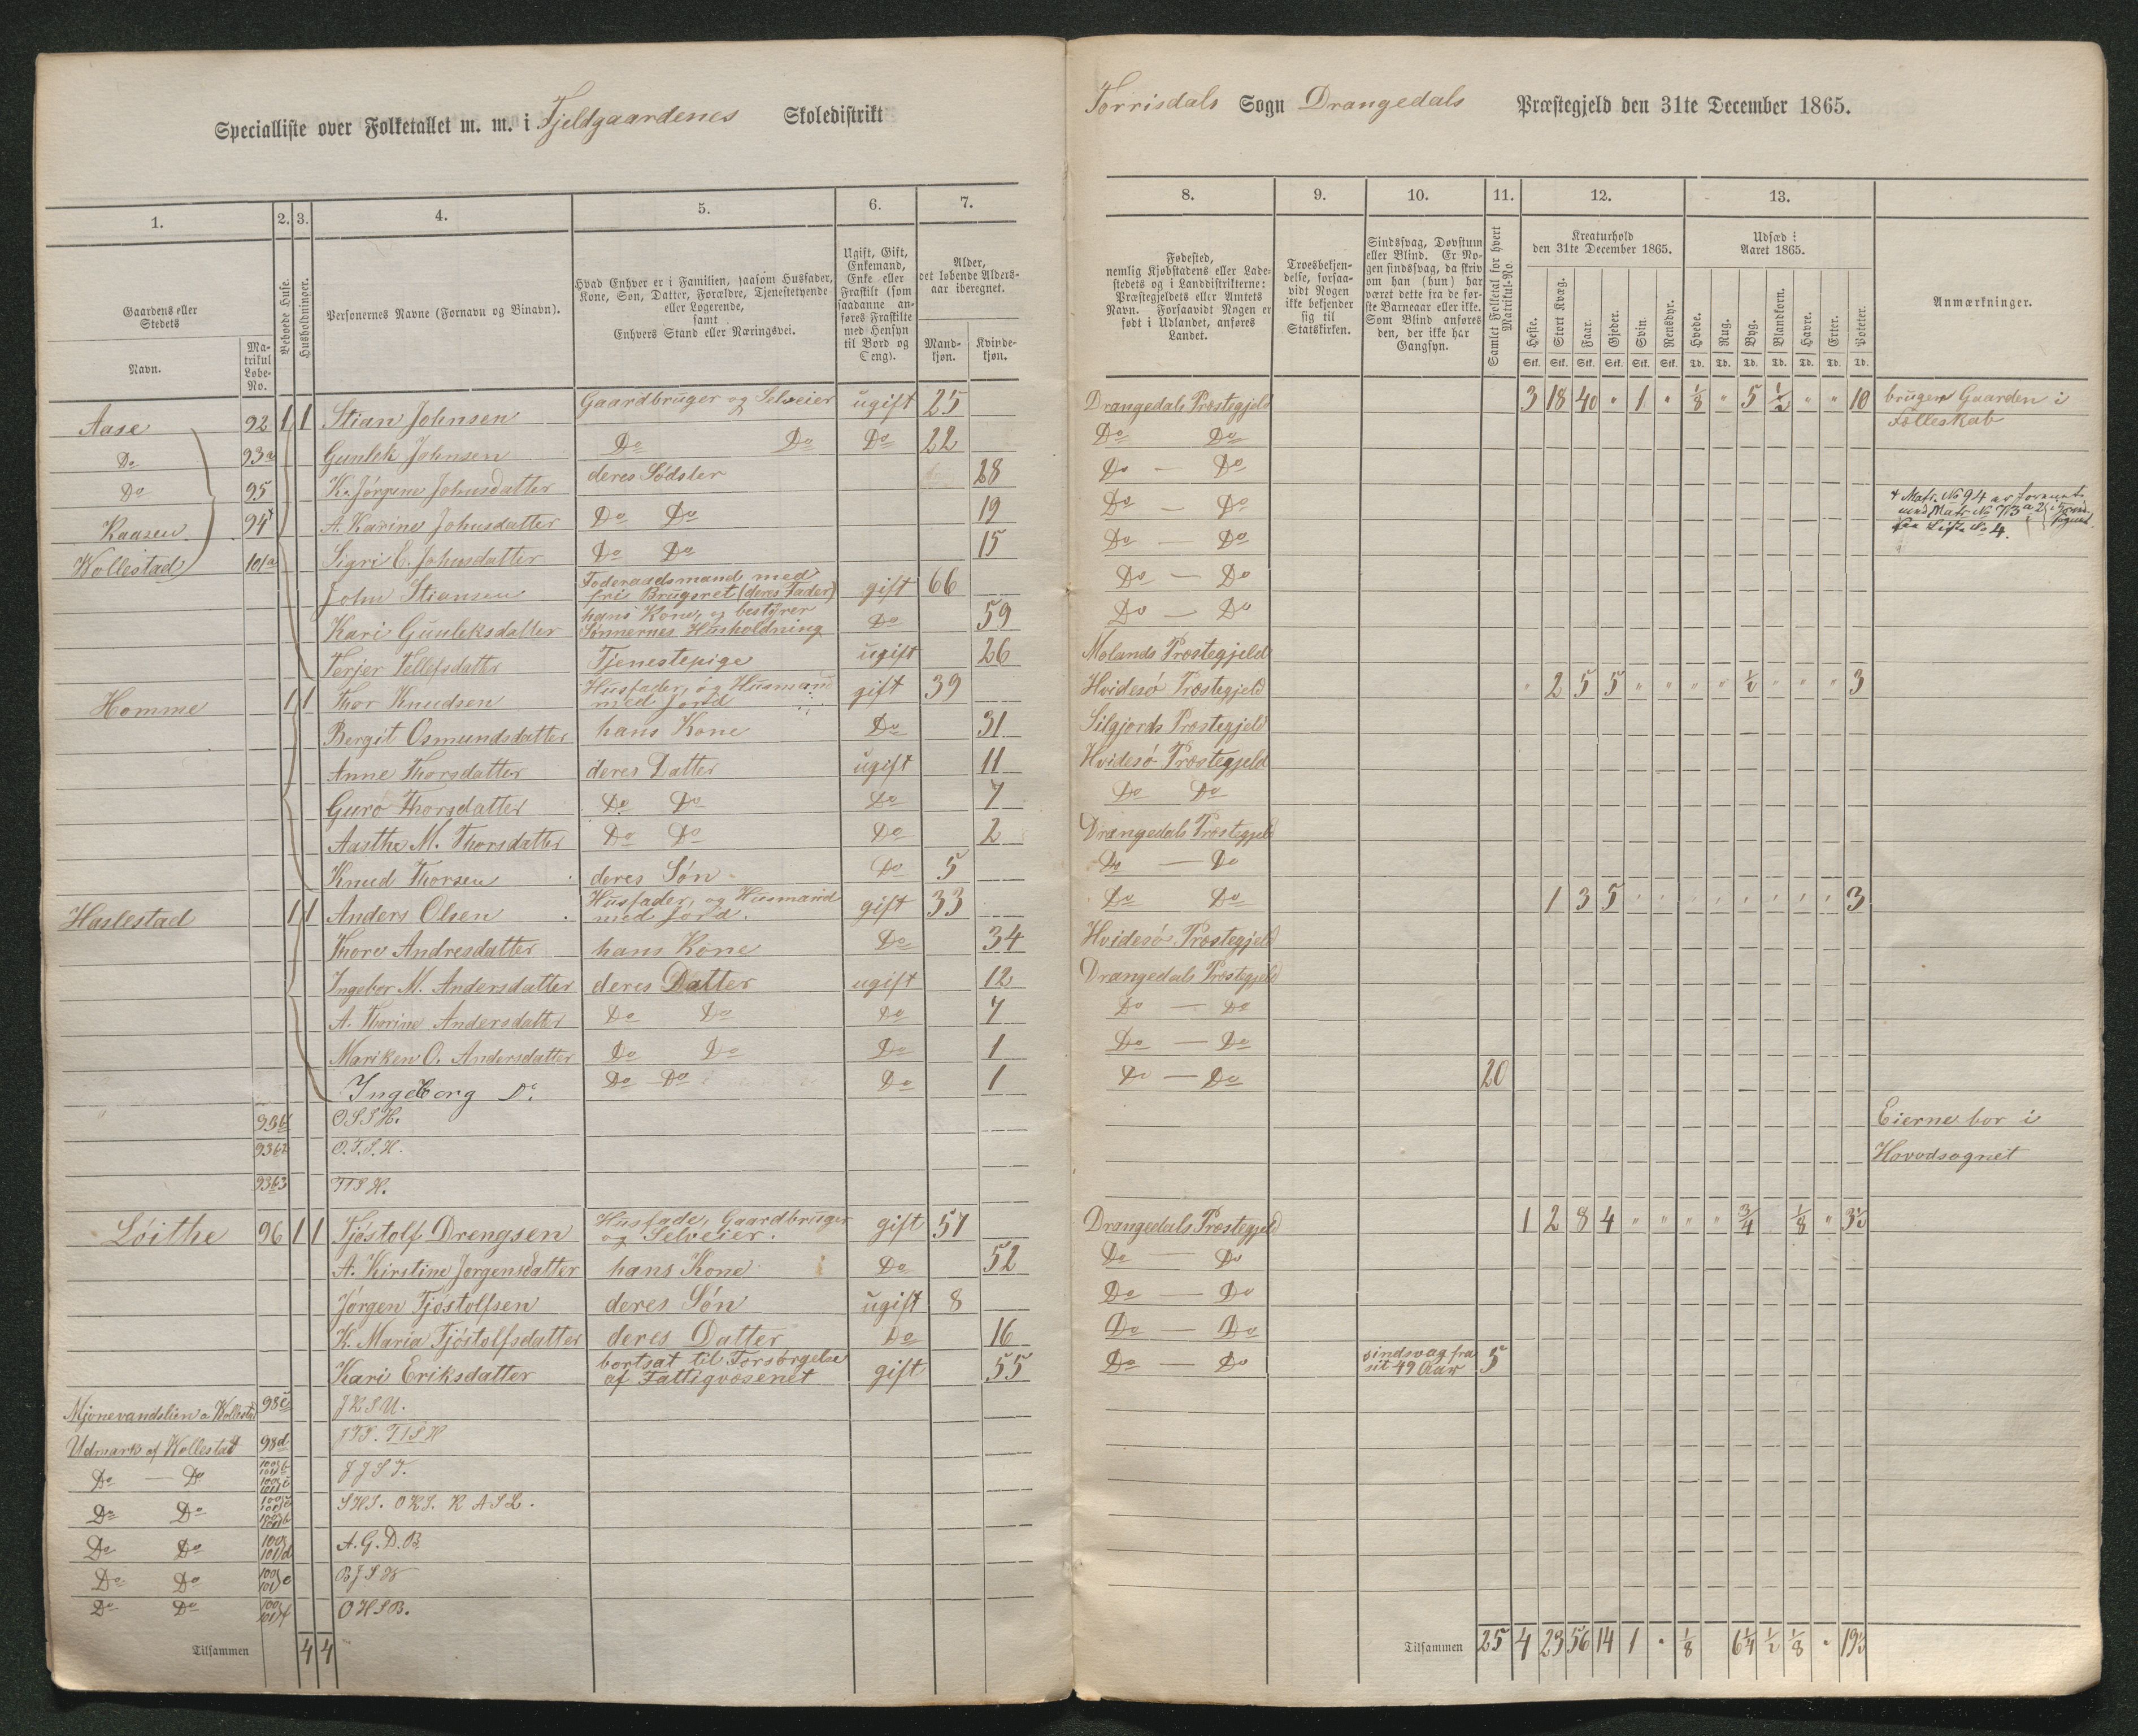 Specialliste over Folketallet m. m. i Fjeldgaardenes Skoledistrikt
Torrisdals Sogn Drangedals Præstegjeld den 31te December 1865.
1. 2. 3. 4. 5. 6. 7. 8. 9. 10. 11. 12. 13.
Gaardens eller Stedets
Navn.
Matrikul Løbe-No.
Beboede Huse.
Husholdninger.
Personernes Navne (Fornavn og Binavn).
Hvad Enhver er i Familien, saasom Husfader, Kone, Søn, Datter, Forældre, Tjenestetyende eller Logerende, samt Enhvers Stand eller Næringsvei.
Ugift, Gift, Enkemand, Enke eller Fraskilt (som saadanne anføres Fraskilte med Hensyn til Bord og Seng).
Alder, det løbende Aldersaar iberegnet.
Mandkjøn. Kvindekjøn.
Fødested, nemlig Kjøbstadens eller Ladestedets og i Landdistrikterne: Præstegjeldets eller Amtets Navn. Forsaavidt Nogen er født i Udlandet, anføres Landet.
Troesbekjendelse, forsaavidt Nogen ikke bekjender sig til Statskirken.
Sindssvag, Døvstum eller Blind. Er Nogen sindssvag, da skriv om han (hun) har været dette fra de første Barneaar eller ikke. Som Blind anføres den, der ikke har Gangsyn.
Samlet Folketal for hvert Matrikul-No.
Kreaturhold den 31te December 1865.
Heste. Stort Kvæg. Faar. Gjeder. Svin. Rensdyr.
Stk. Stk. Stk. Stk. Stk. Stk.
Udsæd i Aaret 1865.
Hvede. Rug. Byg. Blandkorn. Havre. Erter. Poteter.
Td. Td. Td. Td. Td. Td. Td.
Anmærkninger.
Aase 92 1 1 Stian Johnsen Gaardbruger og Selveier ugift 25 Drangedals Præstegjeld 3 18 40 " 1 " 1/8 " 5 1/2 " " 10 bruger Gaarden i Fælleskab
Do 93a Gunlek Johnsen Do Do Do 22 Do Do
Do 95 K. Jørgine Johnsdatter deres Södster 28 Do — Do
Kaasen 94+ A. Karine Johnsdatter Do Do 19 Do — Do + Matr. No 94 er
Wollestad 101a Sigri E. Johnsdatter Do Do 15 Do — Do
John Stiansen Foderaadsmand med fri Brugsret (deres Fader) gift 66 Do — Do
Kari Gunleksdatter hans Kone, og bestyrer Sønnernes Husholdning Do 59 Do — Do
Terjer Tellefsdatter Tjenestepige ugift 26 Molands Præstegjeld
Homme 1 1 Thor Knudsen Husfader, og Husmand med Jord gift 39 Hvidesø Præstegjeld " 2 5 5 " " " " 1/2 " " " 3
Bergit Osmundsdatter hans Kone Do 31 Silgjords Præstegjeld
Anne Thorsdatter deres Datter ugift 11 Hvidesø Præstegjeld
Guro Thorsdatter Do Do Do 7 Do Do
Aasthe M. Thorsdatter Do Do Do 2 Drangedals Præstegjeld
Knud Thorsen deres Søn Do 5 Do — Do
Haslestad 1 1 Anders Olsen Husfader, og Husmand med Jord. gift 33 Do Do 1 3 5 " " " " " " " " 3
Thore Andresdatter hans Kone Do 34 Hvidesø Præstegjeld
Ingebor M. Andersdatter deres Datter ugift 12 Drangedals Præstegjeld
A. Thorine Andersdatter Do Do Do 7 Do — Do
Mariken O. Andersdatter Do Do Do 1 Do — Do
Ingeborg Do. Do Do Do 1 Do — Do 20
" O S S H. Eierne bor i
93b2 O. T. S. H. Hovedsognet
93b3 T I S H.
Løithe 96 1 1 Tjøstolf Drengsen Husfade, Gaardbruger og Selveier. gift 57 Drangedals Præstegjeld 1 2 8 4 " " " " 3/4 1/8 " 3 1/2
A. Kirstine Jørgensdatter hans Kone Do 52 Do — Do
Jørgen Tjøstolfsen deres Søn ugift 8 Do — Do
K. Maria Tjøstolfsdatter deres Datter Do 16 Do — Do
Kari Eriksdatter bortsat til Forsørgelse af Fattigvæsenet gift 55 Do — Do sindsvag fra sit 49 Aar 5
Mjonevandslien a Wollestad 98c J K S U.
Udmark af Wollestad 98d T I S H
Do — Do J J S T.
Do Do S H S. O K S. K A S L.
Do Do 100 101 d A. G. D. B
Do Do 100 101 e B J S W
Do Do 100 101 f O H S B.
Tilsammen 4 4
Tilsammen 25 4 23 56 14 1 " 1/8 6 1/4 1/2 1/8 " 19 1/2